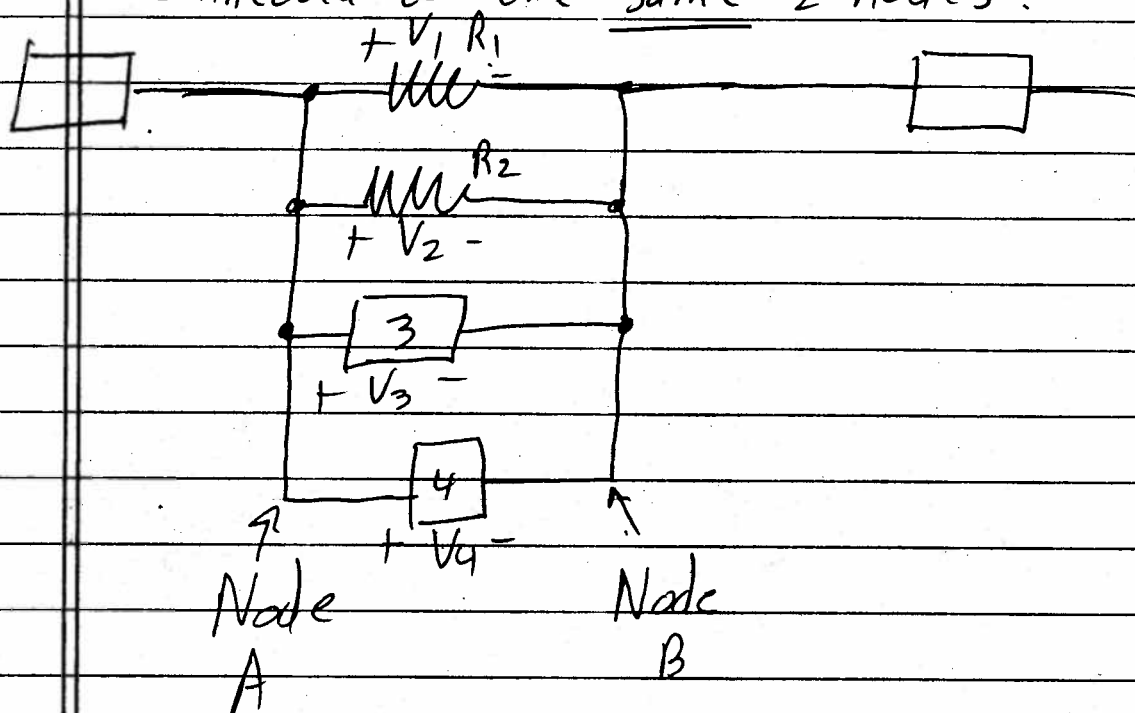 the same 2 nodes.
+ V1 R1 -
R2
+ V2 -
3
+ V3 -
4
+ V4 -
Node Node
A B